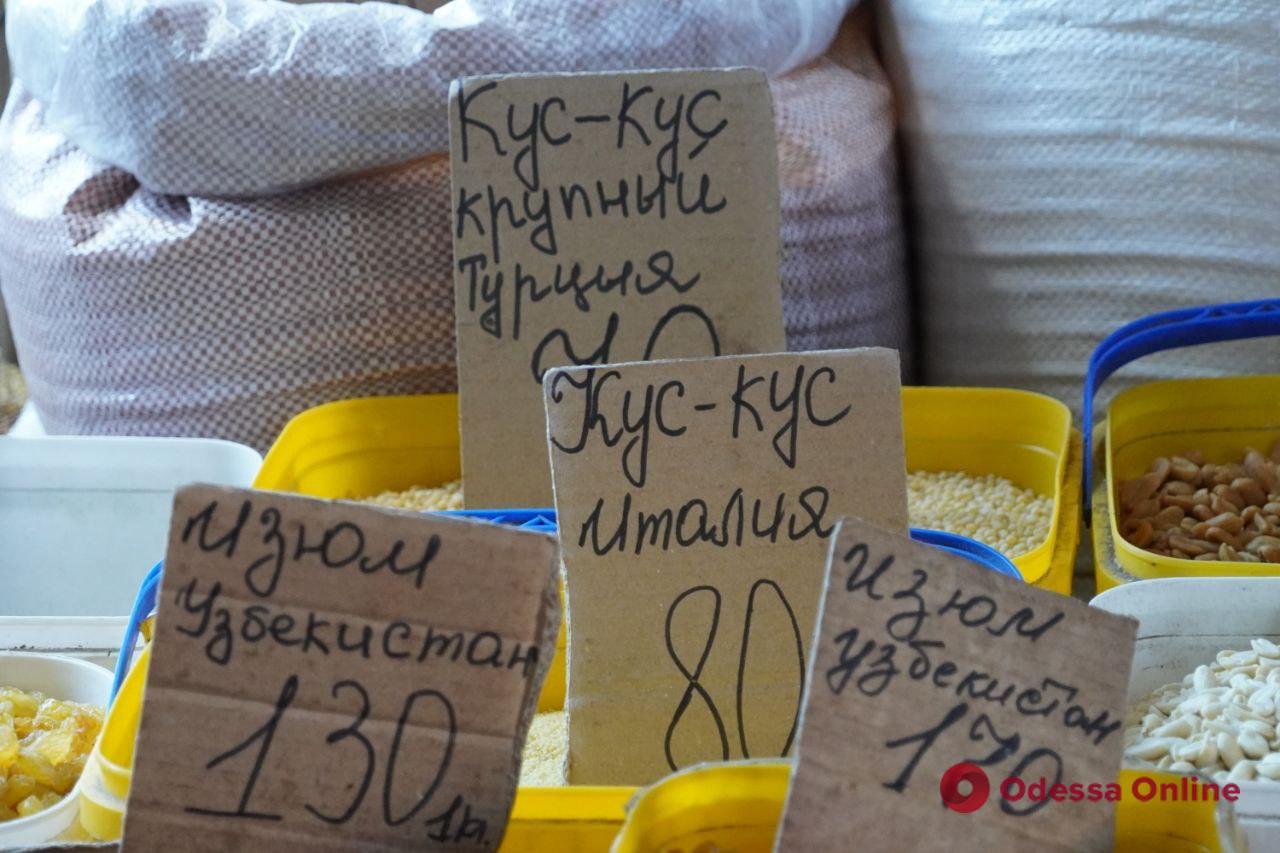 Кус-кус
крупный
Турция
Кус-кус
Италия
80
Изюм
Узбекистан
130
1кг.
Изюм
Узбекистан
170
Odessa Online